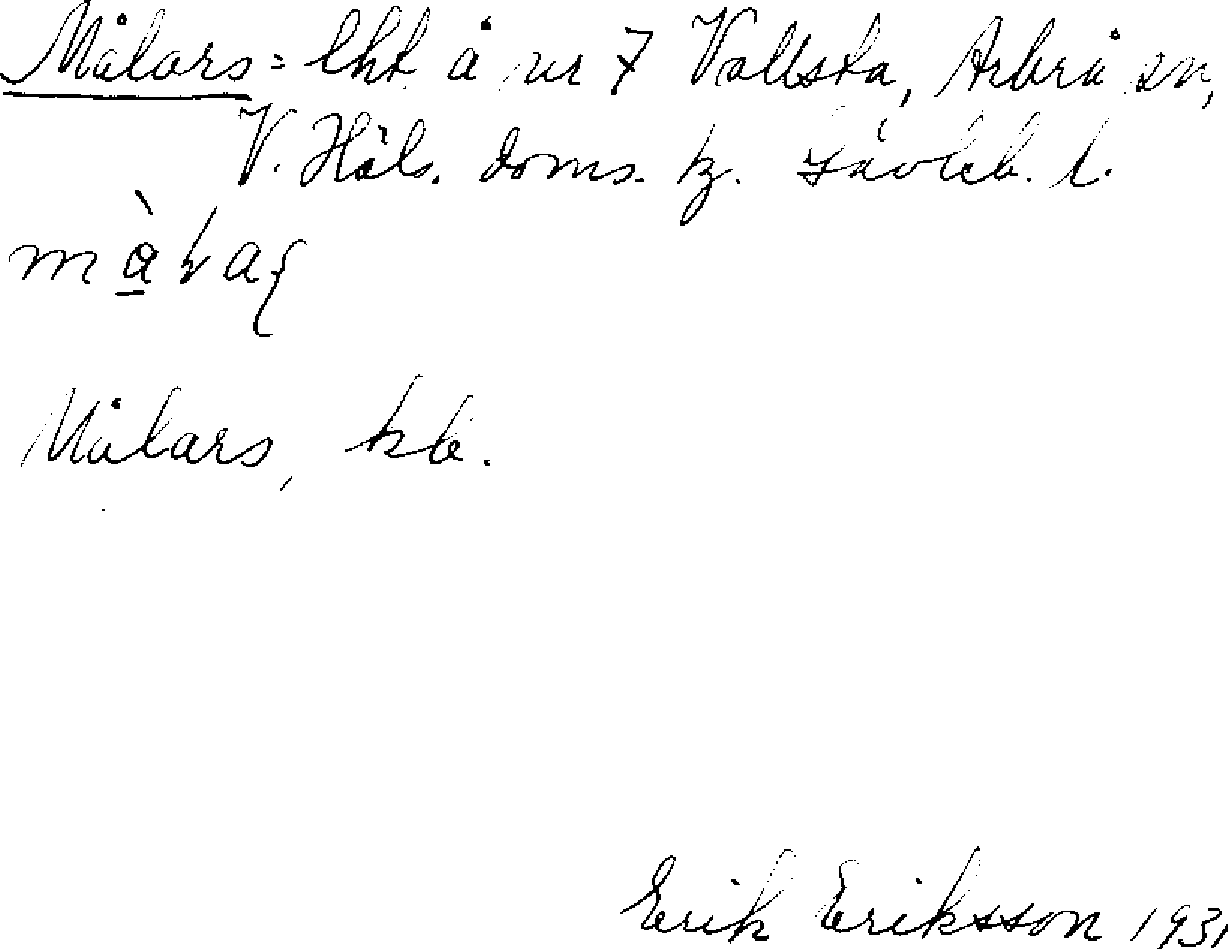 Målars = lht å nr 7 Vallsta, Arbrå sn,
V. Häls. doms. hz. Gävleb. l.
Målars, kb.
Erik Eriksson 1931